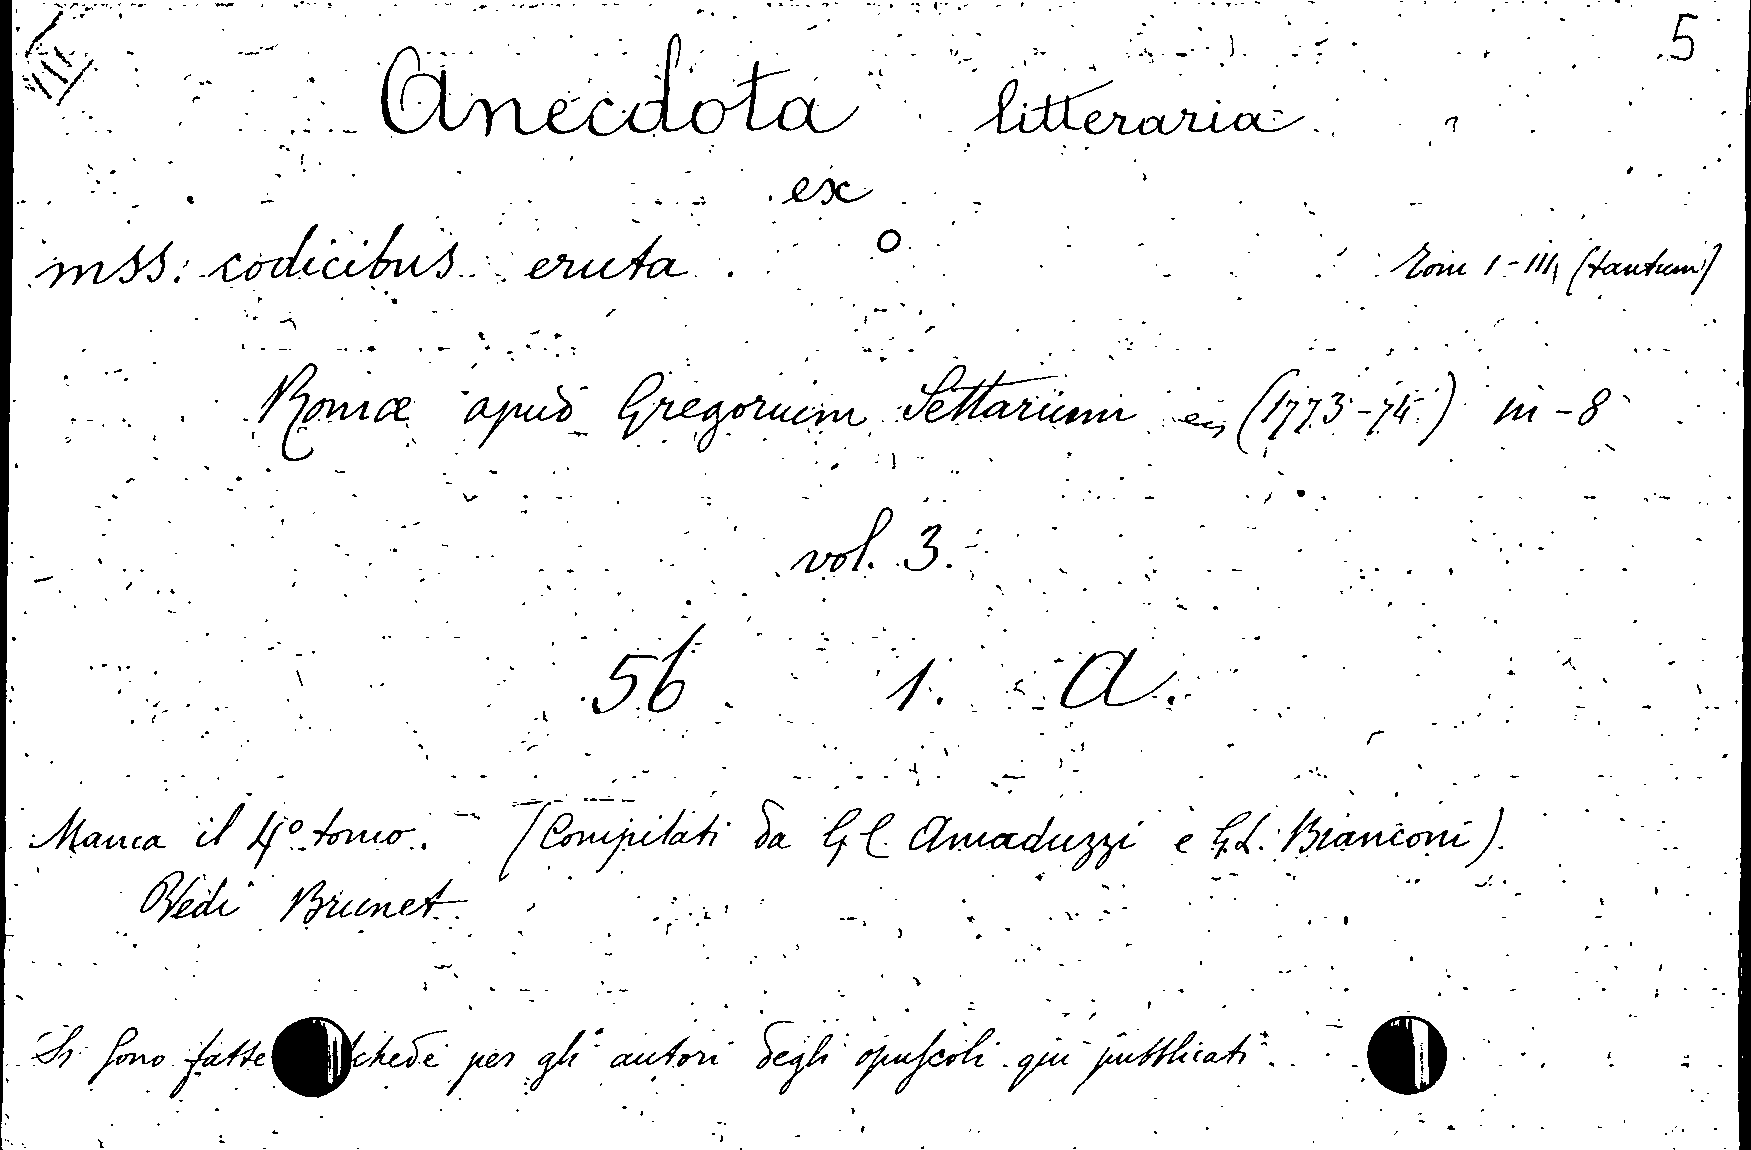 VIII
5
Anecdota litteraria
ex
mss: codicibus eruta. Tom I-III, (tantum)
Romæ apud Gregorium Settarium (1773-74) in-8
vol. 3.
56 1. A.
Manca il 4º tomo. (Compilati da G. C. Amaduzzi e G. L. Bianconi).
Vedi Brunet
Si sono fatte schede per gli autori degli opuscoli qui pubblicati.